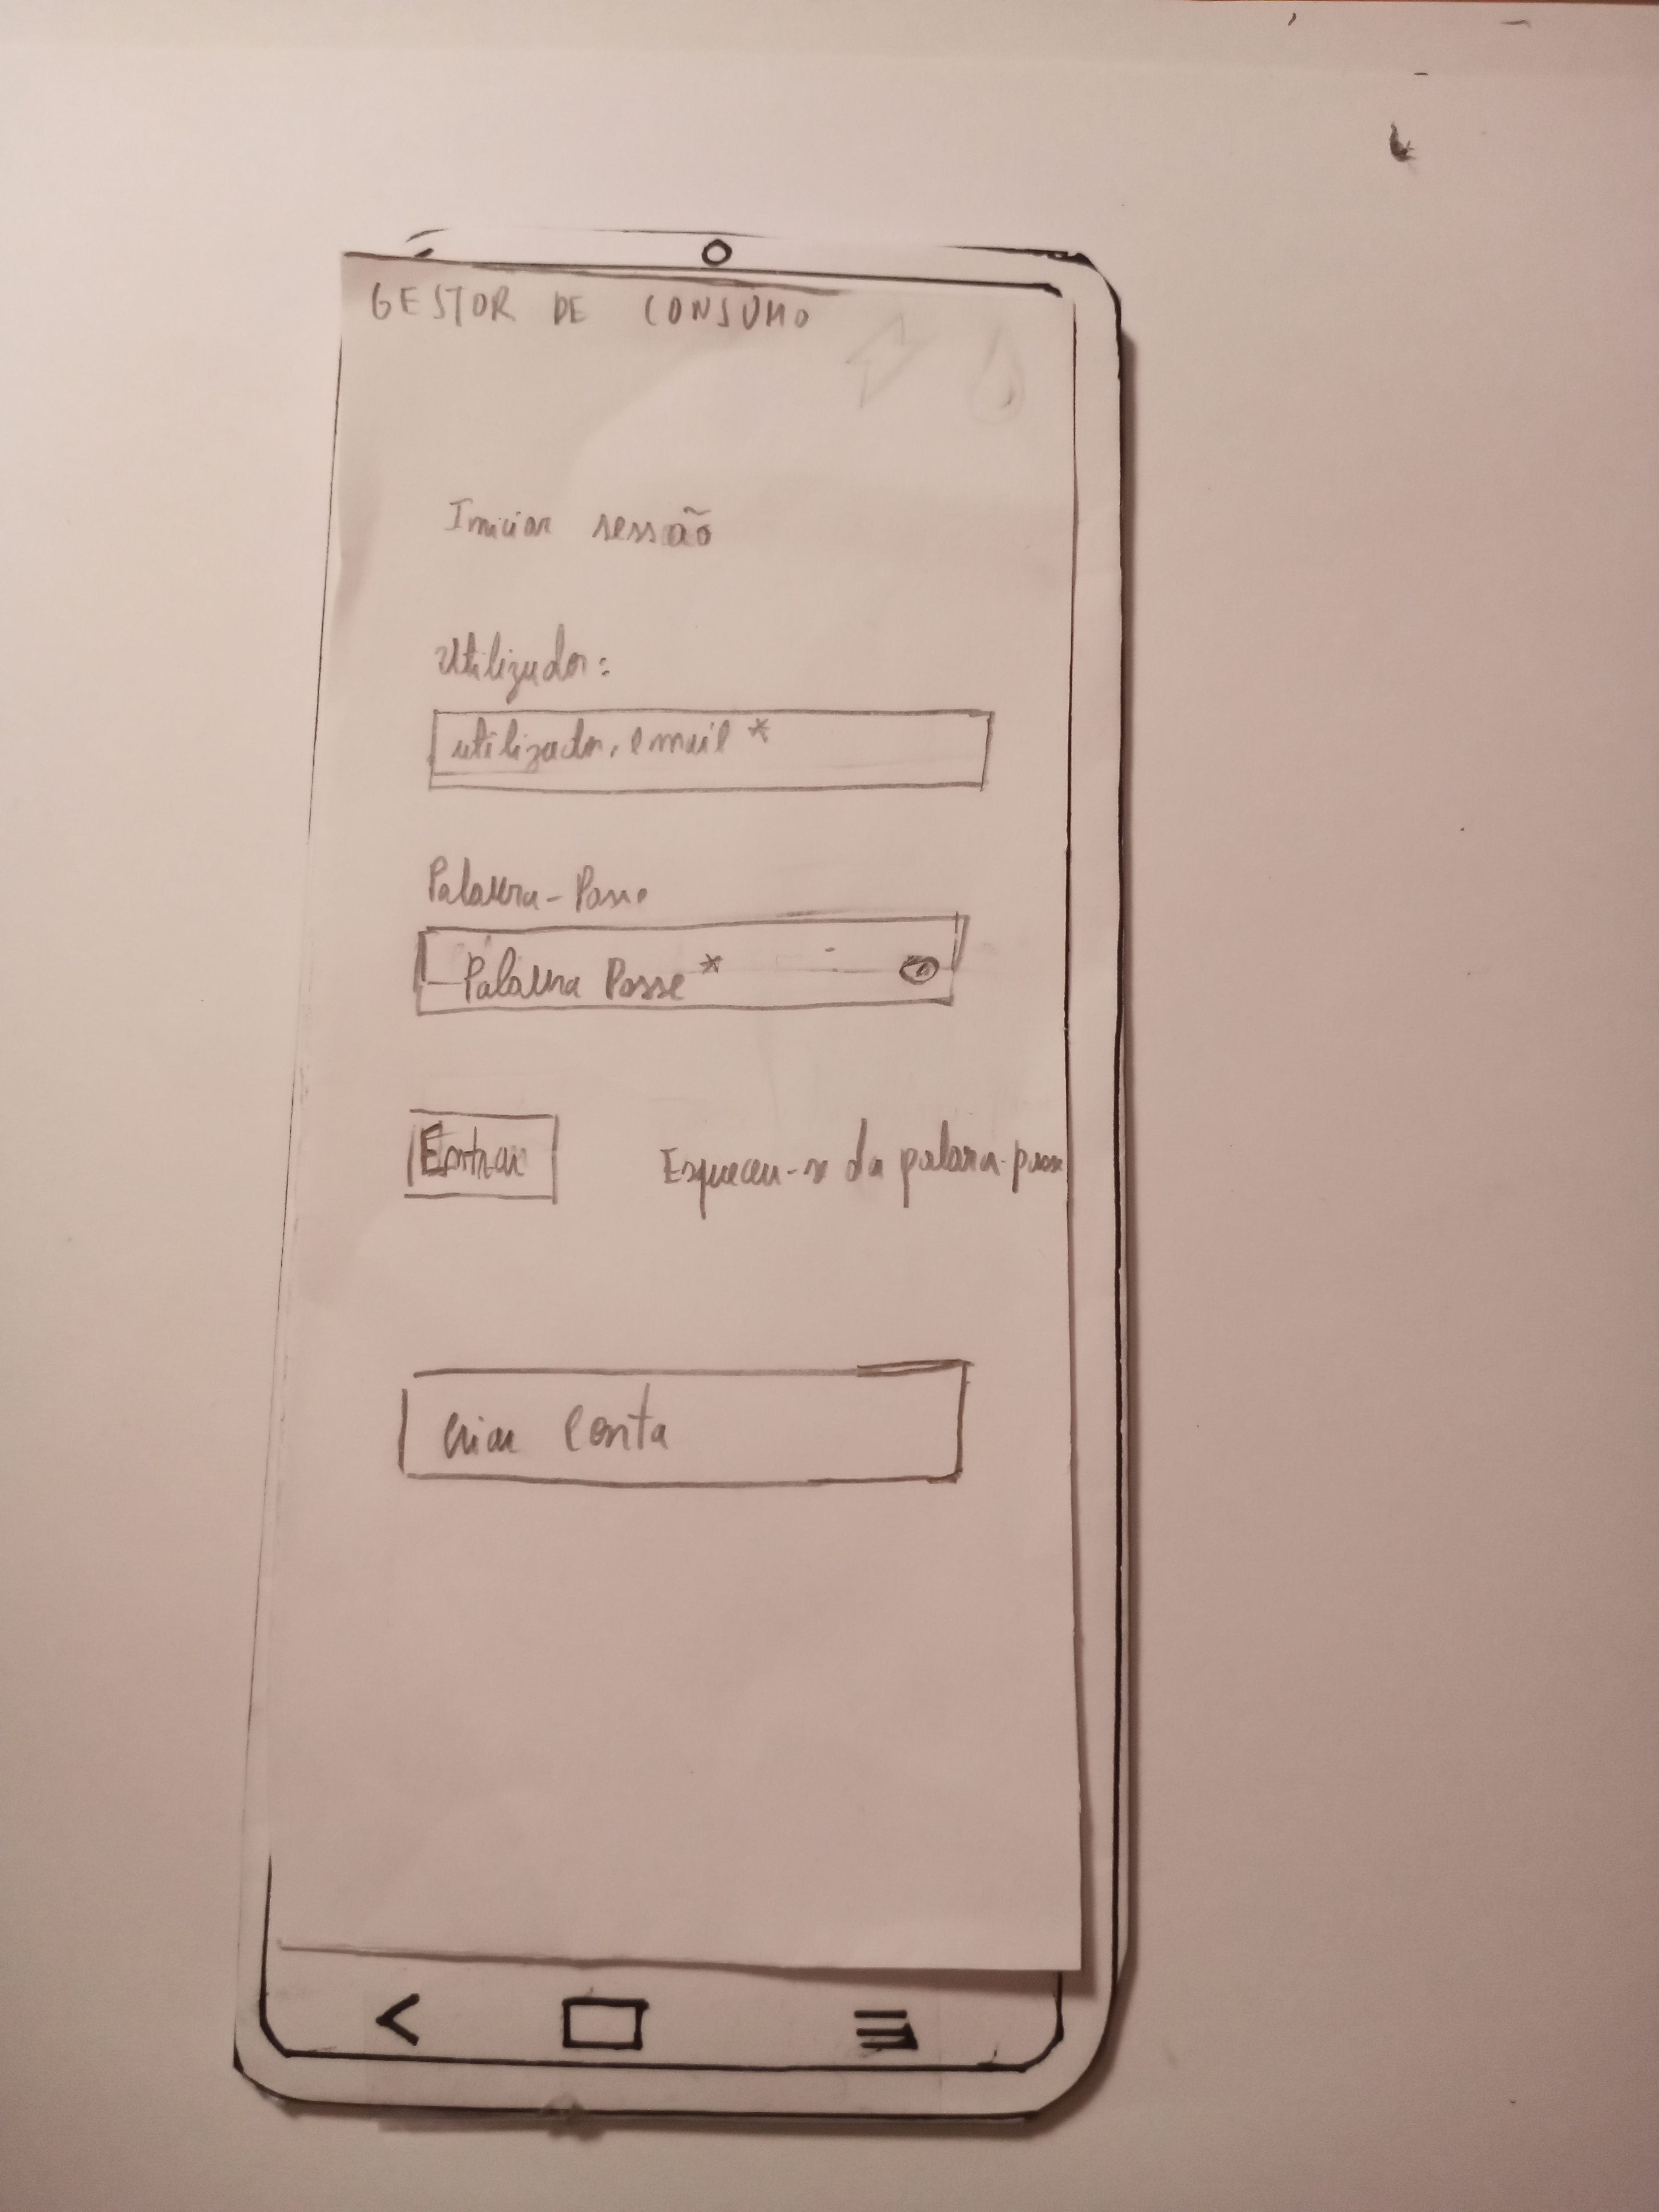 GESTOR DE CONSUMO
Iniciar sessão
Utilizador:
utilizador, email *
Palavra-Passe
Palavra Passe *
Entrar
Esqueceu-se da palavra-passe
Criar conta